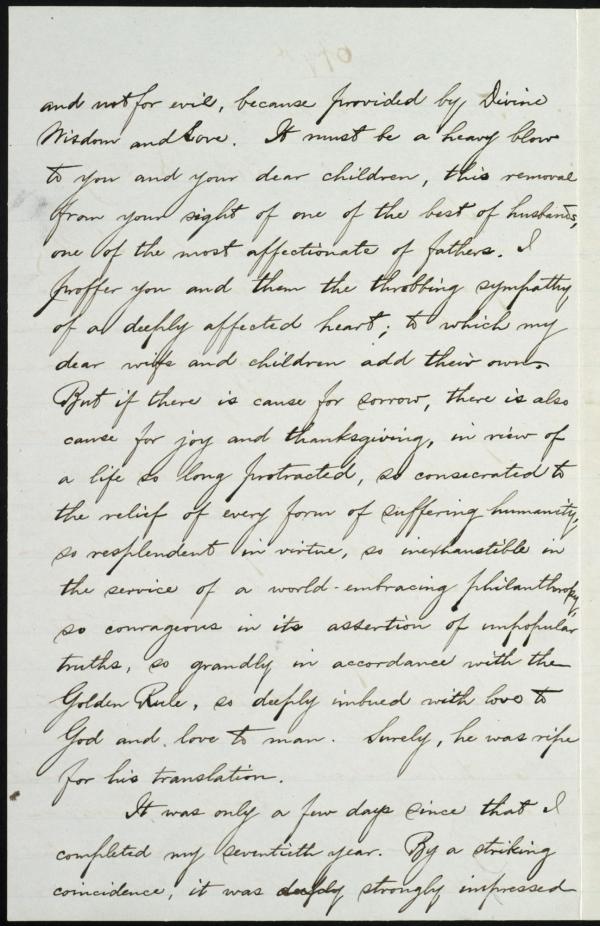 and not for evil, because provided by Divine
Wisdom and Love. It must be a heavy blow
to you and your dear children, this removal
from your sight of one of the best of husbands,
one of the most affectionate of fathers. I
proffer you and them the throbbing sympathy
of a deeply affected heart; to which my
dear wife and children add their own.
But if there is cause for sorrow, there is also
cause for joy and thanksgiving, in view of
a life so long protracted, so consecrated to
the relief of every form of suffering humanity,
so resplendent in virtue, so inexhaustible in
the service of a world-embracing philanthropy,
so courageous in its assertion of unpopular
truths, so grandly in accordance with the
Golden Rule, so deeply imbued with love to
God and love to man. Surely, he was ripe
for his translation.
It was only a few days since that I
completed my seventieth year. By a striking
coincidence, it was deeply strongly impressed